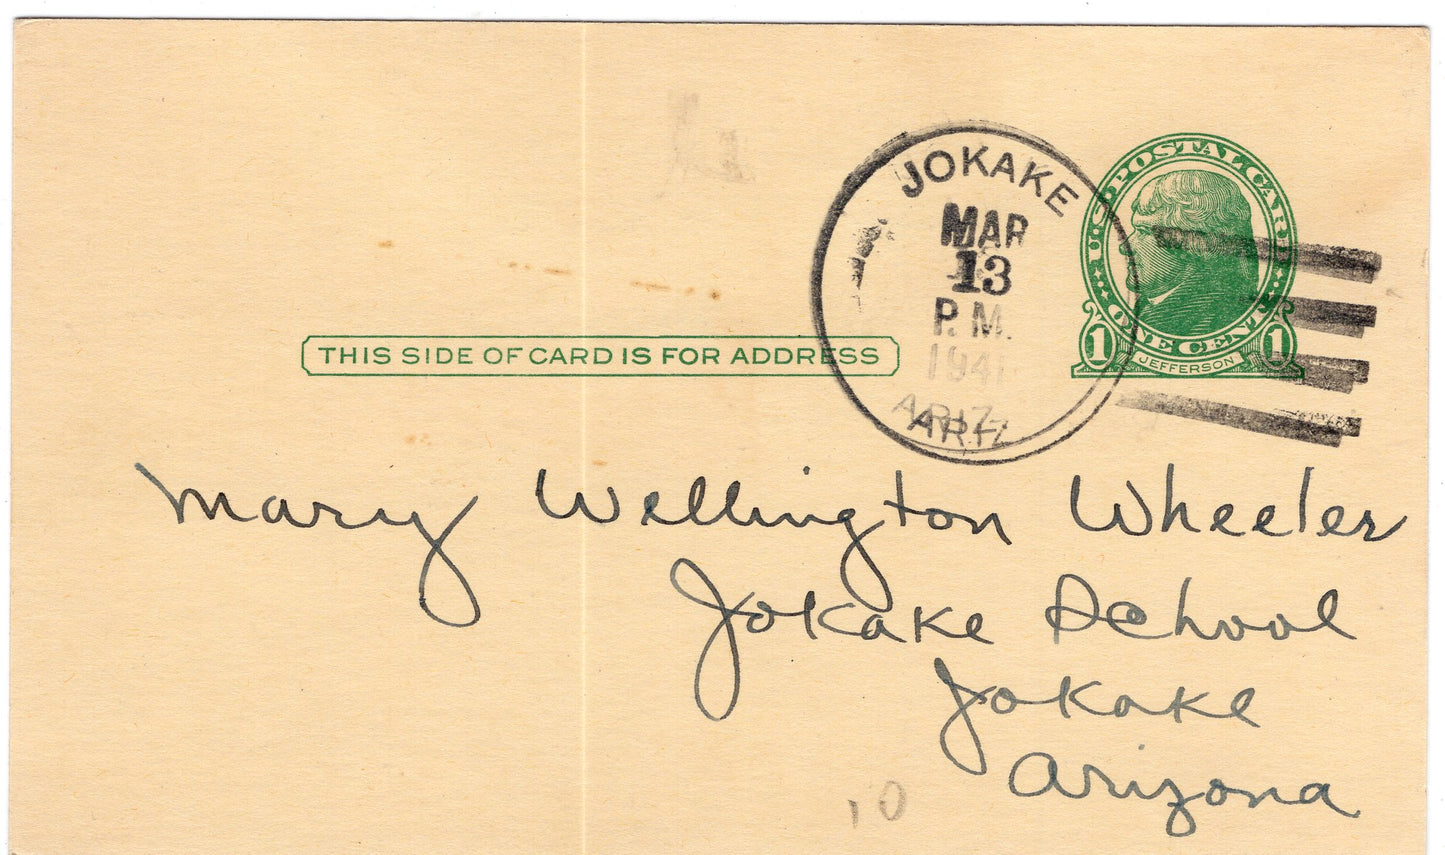 JOKAKE
MAR
13
P.M.
1941
ARIZ.
U.S. POSTAL CARD
1 ONE CENT 1
JEFFERSON
THIS SIDE OF CARD IS FOR ADDRESS
Mary Wellington Wheeler
Jokake School
Jokake
Arizona
10